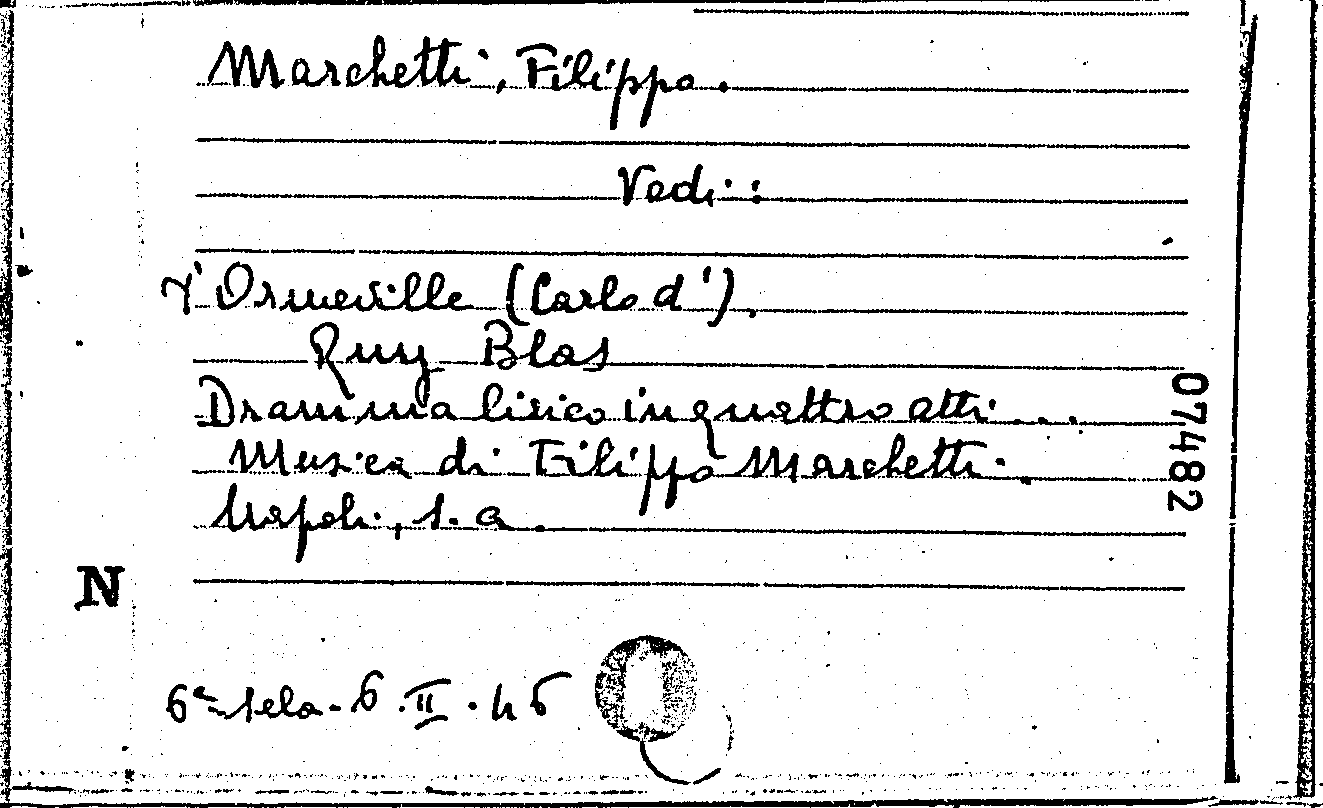 Marchetti, Filippo.
Vedi:
d'Ormeville (Carlo d').
Ruy Blas
Dramma lirico in quattro atti...
Musica di Filippo Marchetti.
Napoli, s. a.
07482
N
6ª sela - 6 . II . 46